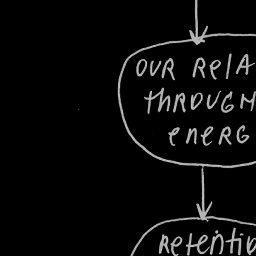 OUR RELA
THROUGH
ENERG
RETENTIO